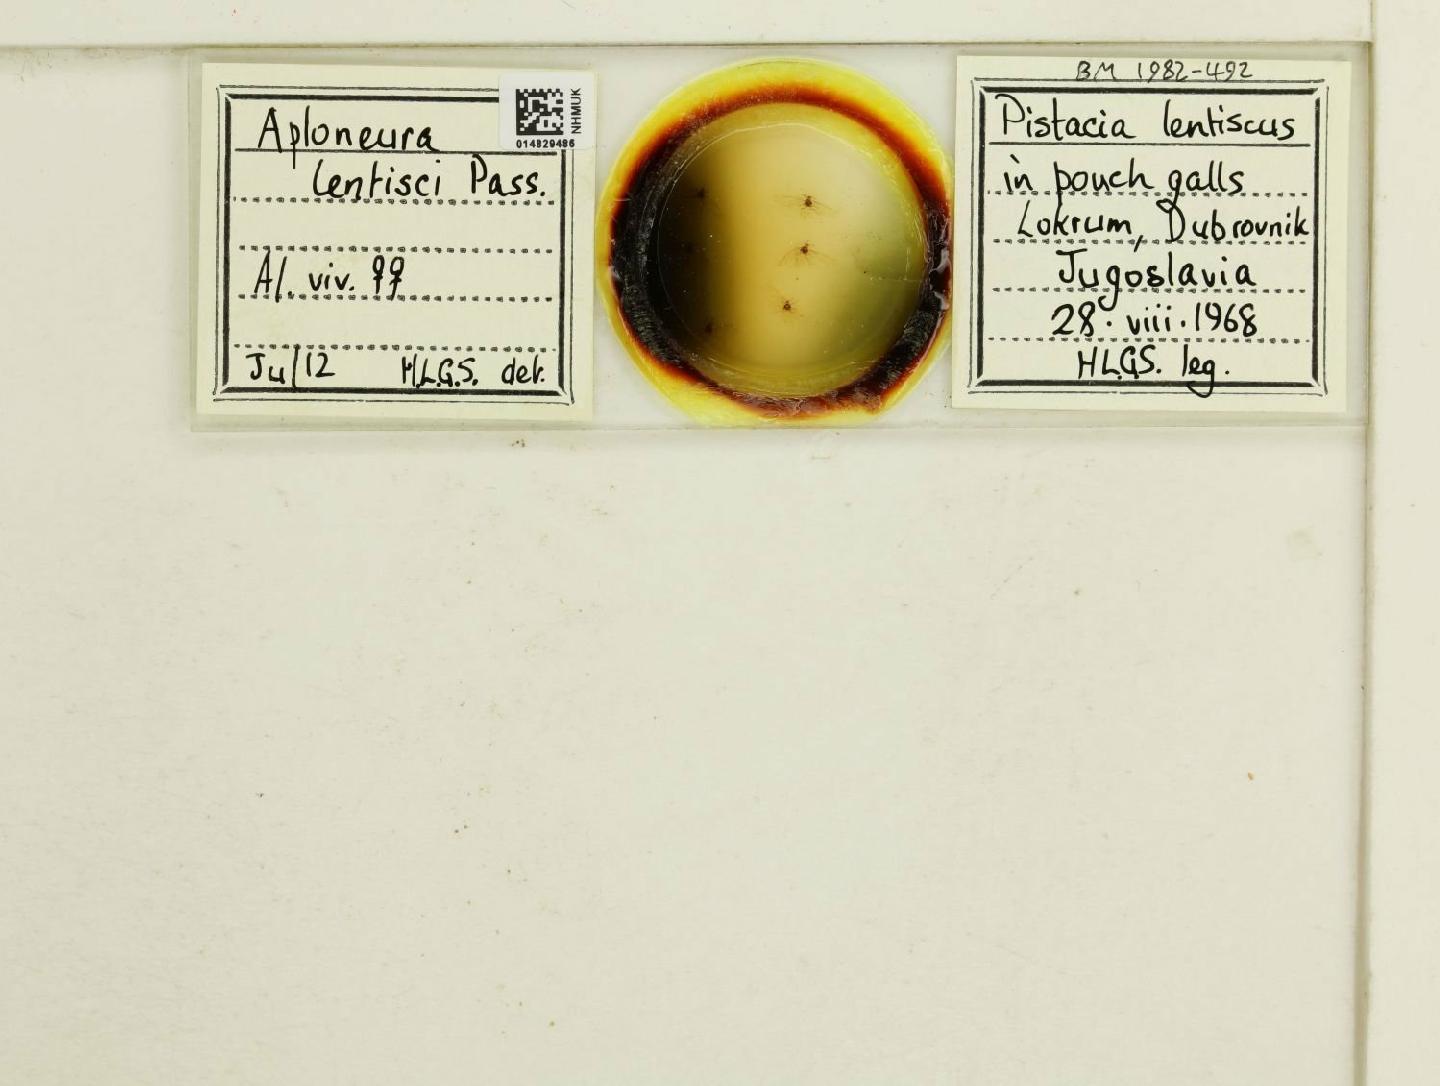 Aploneura
lentisci Pass.
Al. viv. ♀♀
Ju/12 H.L.G.S. det.
NHMUK
014829486
BM 1982-492
Pistacia lentiscus
in pouch galls
Lokrum, Dubrovnik
Jugoslavia
28. viii. 1968
H.L.G.S. leg.